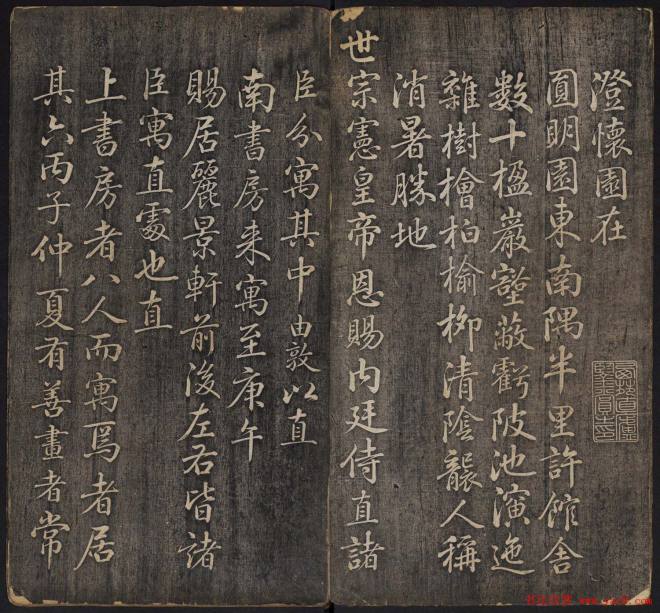 澄懷園在
圓明園東南隅半里許館舍
數十楹巖壑蔽虧陂池演迤
雜樹檜柏榆柳清陰襲人稱
消暑勝地
世宗憲皇帝恩賜内廷侍直諸
臣分寓其中由敦以直
南書房来寓至庚午
賜居麗景軒前後左右皆諸
臣寓直處也直
上書房者八人而寓焉者居
其六丙子仲夏有善畫者常